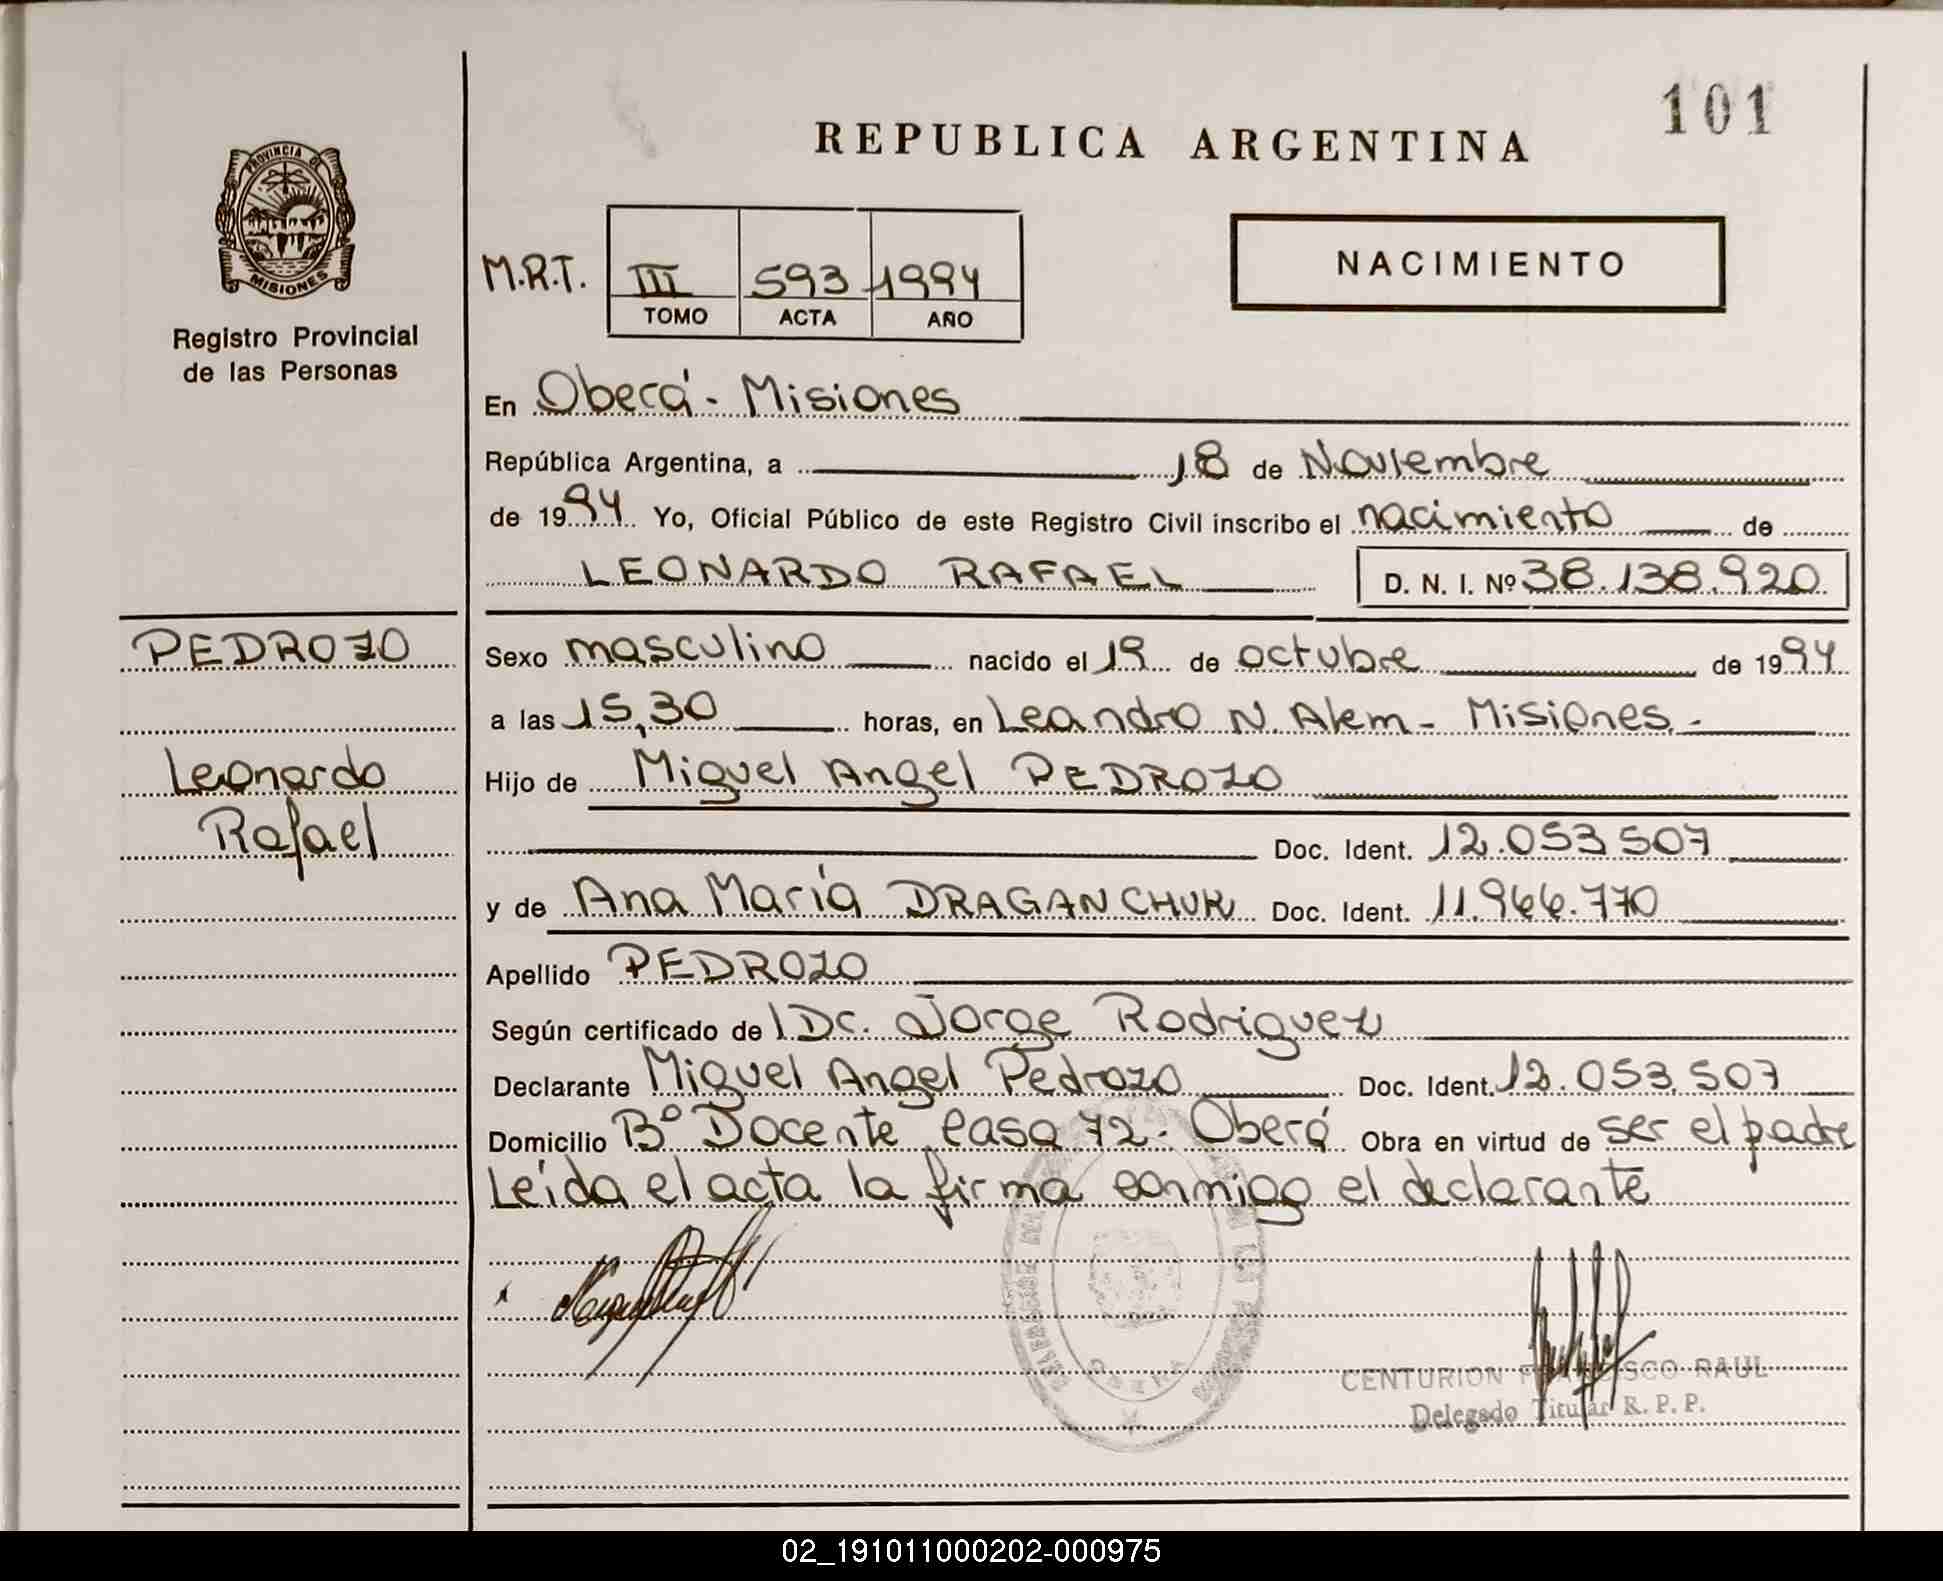 101
REPUBLICA ARGENTINA
PROVINCIA DE
MISIONES
Registro Provincial
de las Personas
M.R.T. III 593 1994
TOMO ACTA AÑO
NACIMIENTO
En Oberá - Misiones
República Argentina, a 18 de Noviembre
de 1994 Yo, Oficial Público de este Registro Civil inscribo el nacimiento de
LEONARDO RAFAEL D. N. I. Nº 38.138.920
PEDROZO
Leonardo
Rafael
Sexo masculino nacido el 19 de octubre de 1994
a las 15,30 horas, en Leandro N. Alem - Misiones.-
Hijo de Miguel Angel PEDROZO
Doc. Ident. 12.053.507
y de Ana María DRAGANCHUK Doc. Ident. 11.966.770
Apellido PEDROZO
Según certificado de Dr. Jorge Rodriguez
Declarante Miguel Angel Pedrozo Doc. Ident. 12.053.507
Domicilio Bº Docente casa 72 - Oberá Obra en virtud de ser el padre
Leída el acta la firma conmigo el declarante
CENTURION FRANCISCO RAUL
Delegado Titular R. P. P.
02_191011000202-000975